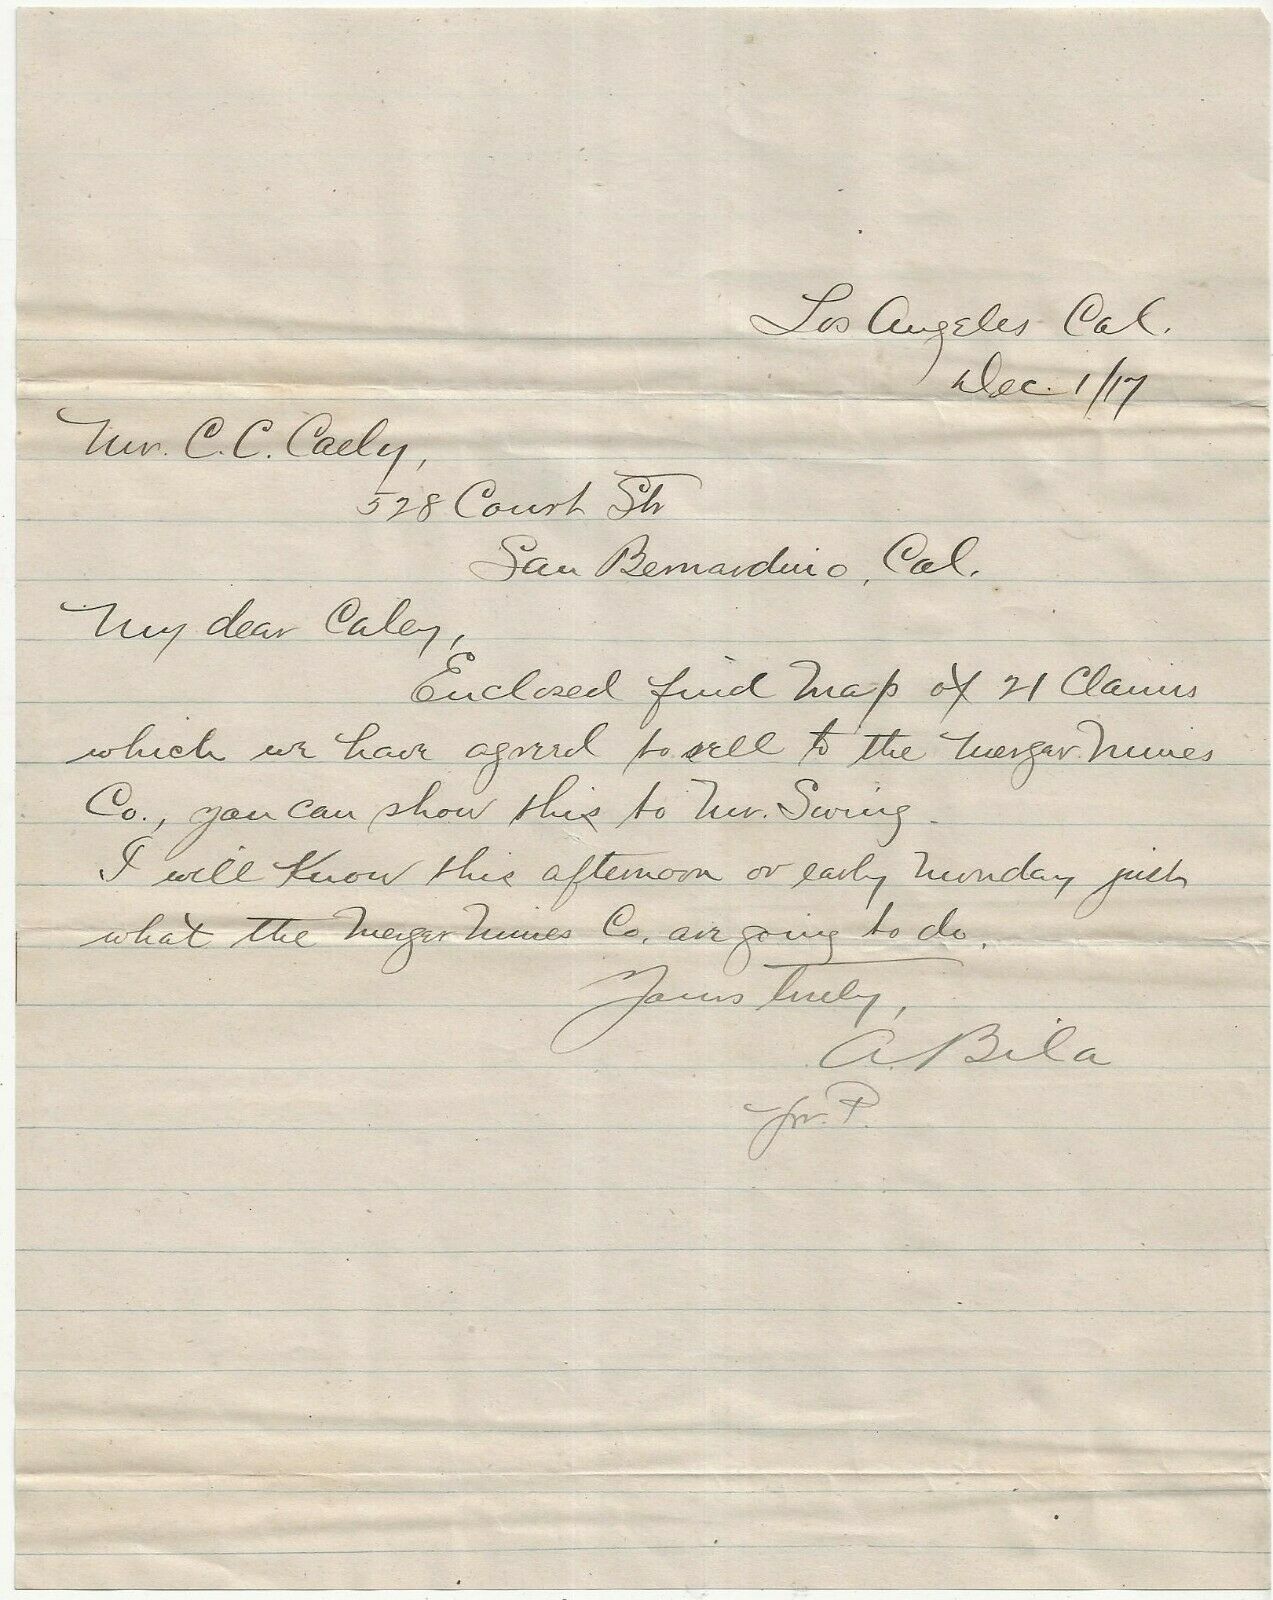 Los Angeles Cal.
Dec. 1/17
Mr. C. C. Caely,
528 Court Str
San Bernardino, Cal.
My dear Caley,
Enclosed find Map of 21 Claims
which we have agreed to sell to the Merger Mines
Co., you can show this to Mr. Swing.
I will Know this afternoon or early Monday just
what the Merger Mines Co. are going to do.
Yours Truly,
A. Bila
P.